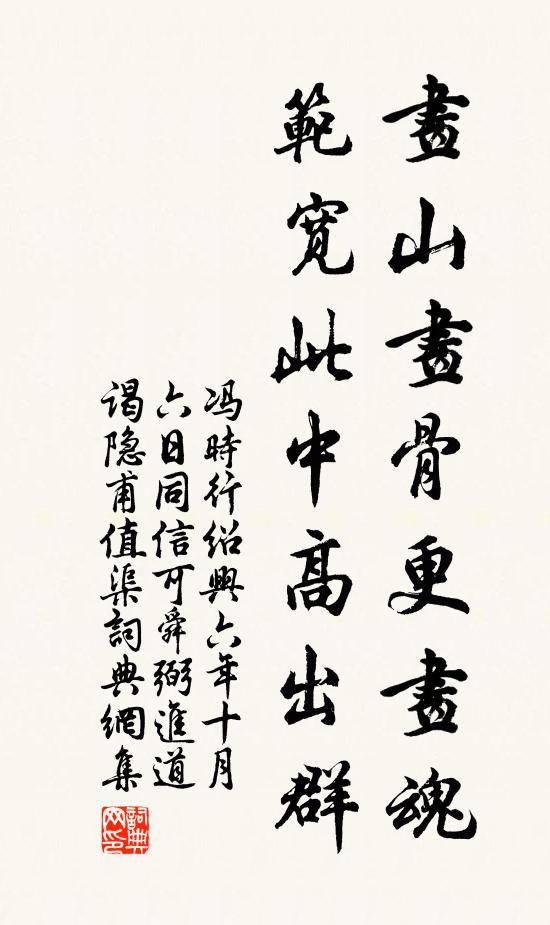 畫山畫骨更畫魂
範寬此中高出群
冯時行绍興六年十月
六日同信可舜弼進道
谒隐甫值渠詞典網集
詞典网印